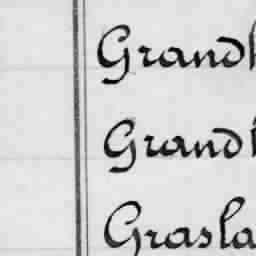 Grandh
Grandh
Grasla